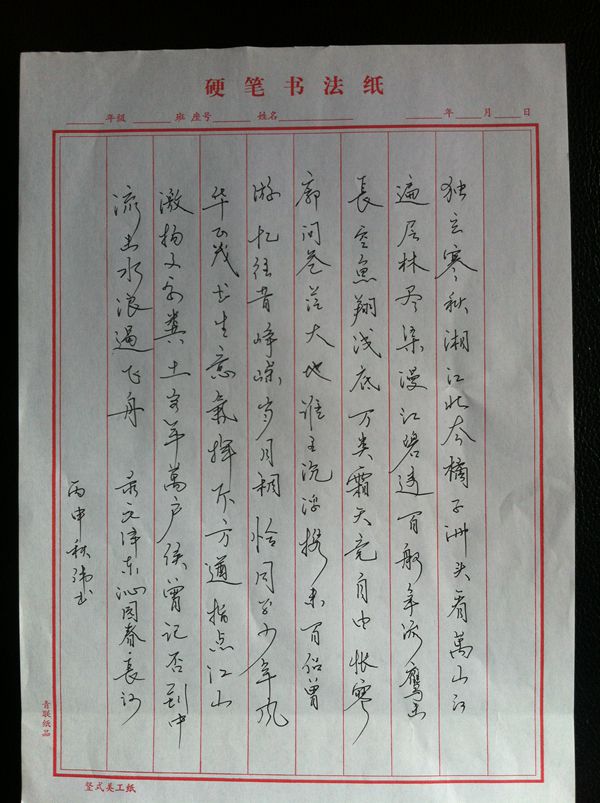 硬笔书法纸
年级 班 座号 姓名 年 月 日
独立寒秋湘江北去橘子洲头看萬山红
遍层林尽染漫江碧透百舸争流鹰击
長空魚翔浅底万类霜天竞自由怅寥
廓问苍茫大地谁主沉浮携来百侣曾
游忆往昔峥嵘岁月稠恰同学少年风
华正茂书生意气挥斥方遒指点江山
激扬文字粪土当年萬户侯曾记否到中
流击水浪遏飞舟 录毛泽东沁园春長沙
丙申秋伟书
青联纸品
竖式美工纸